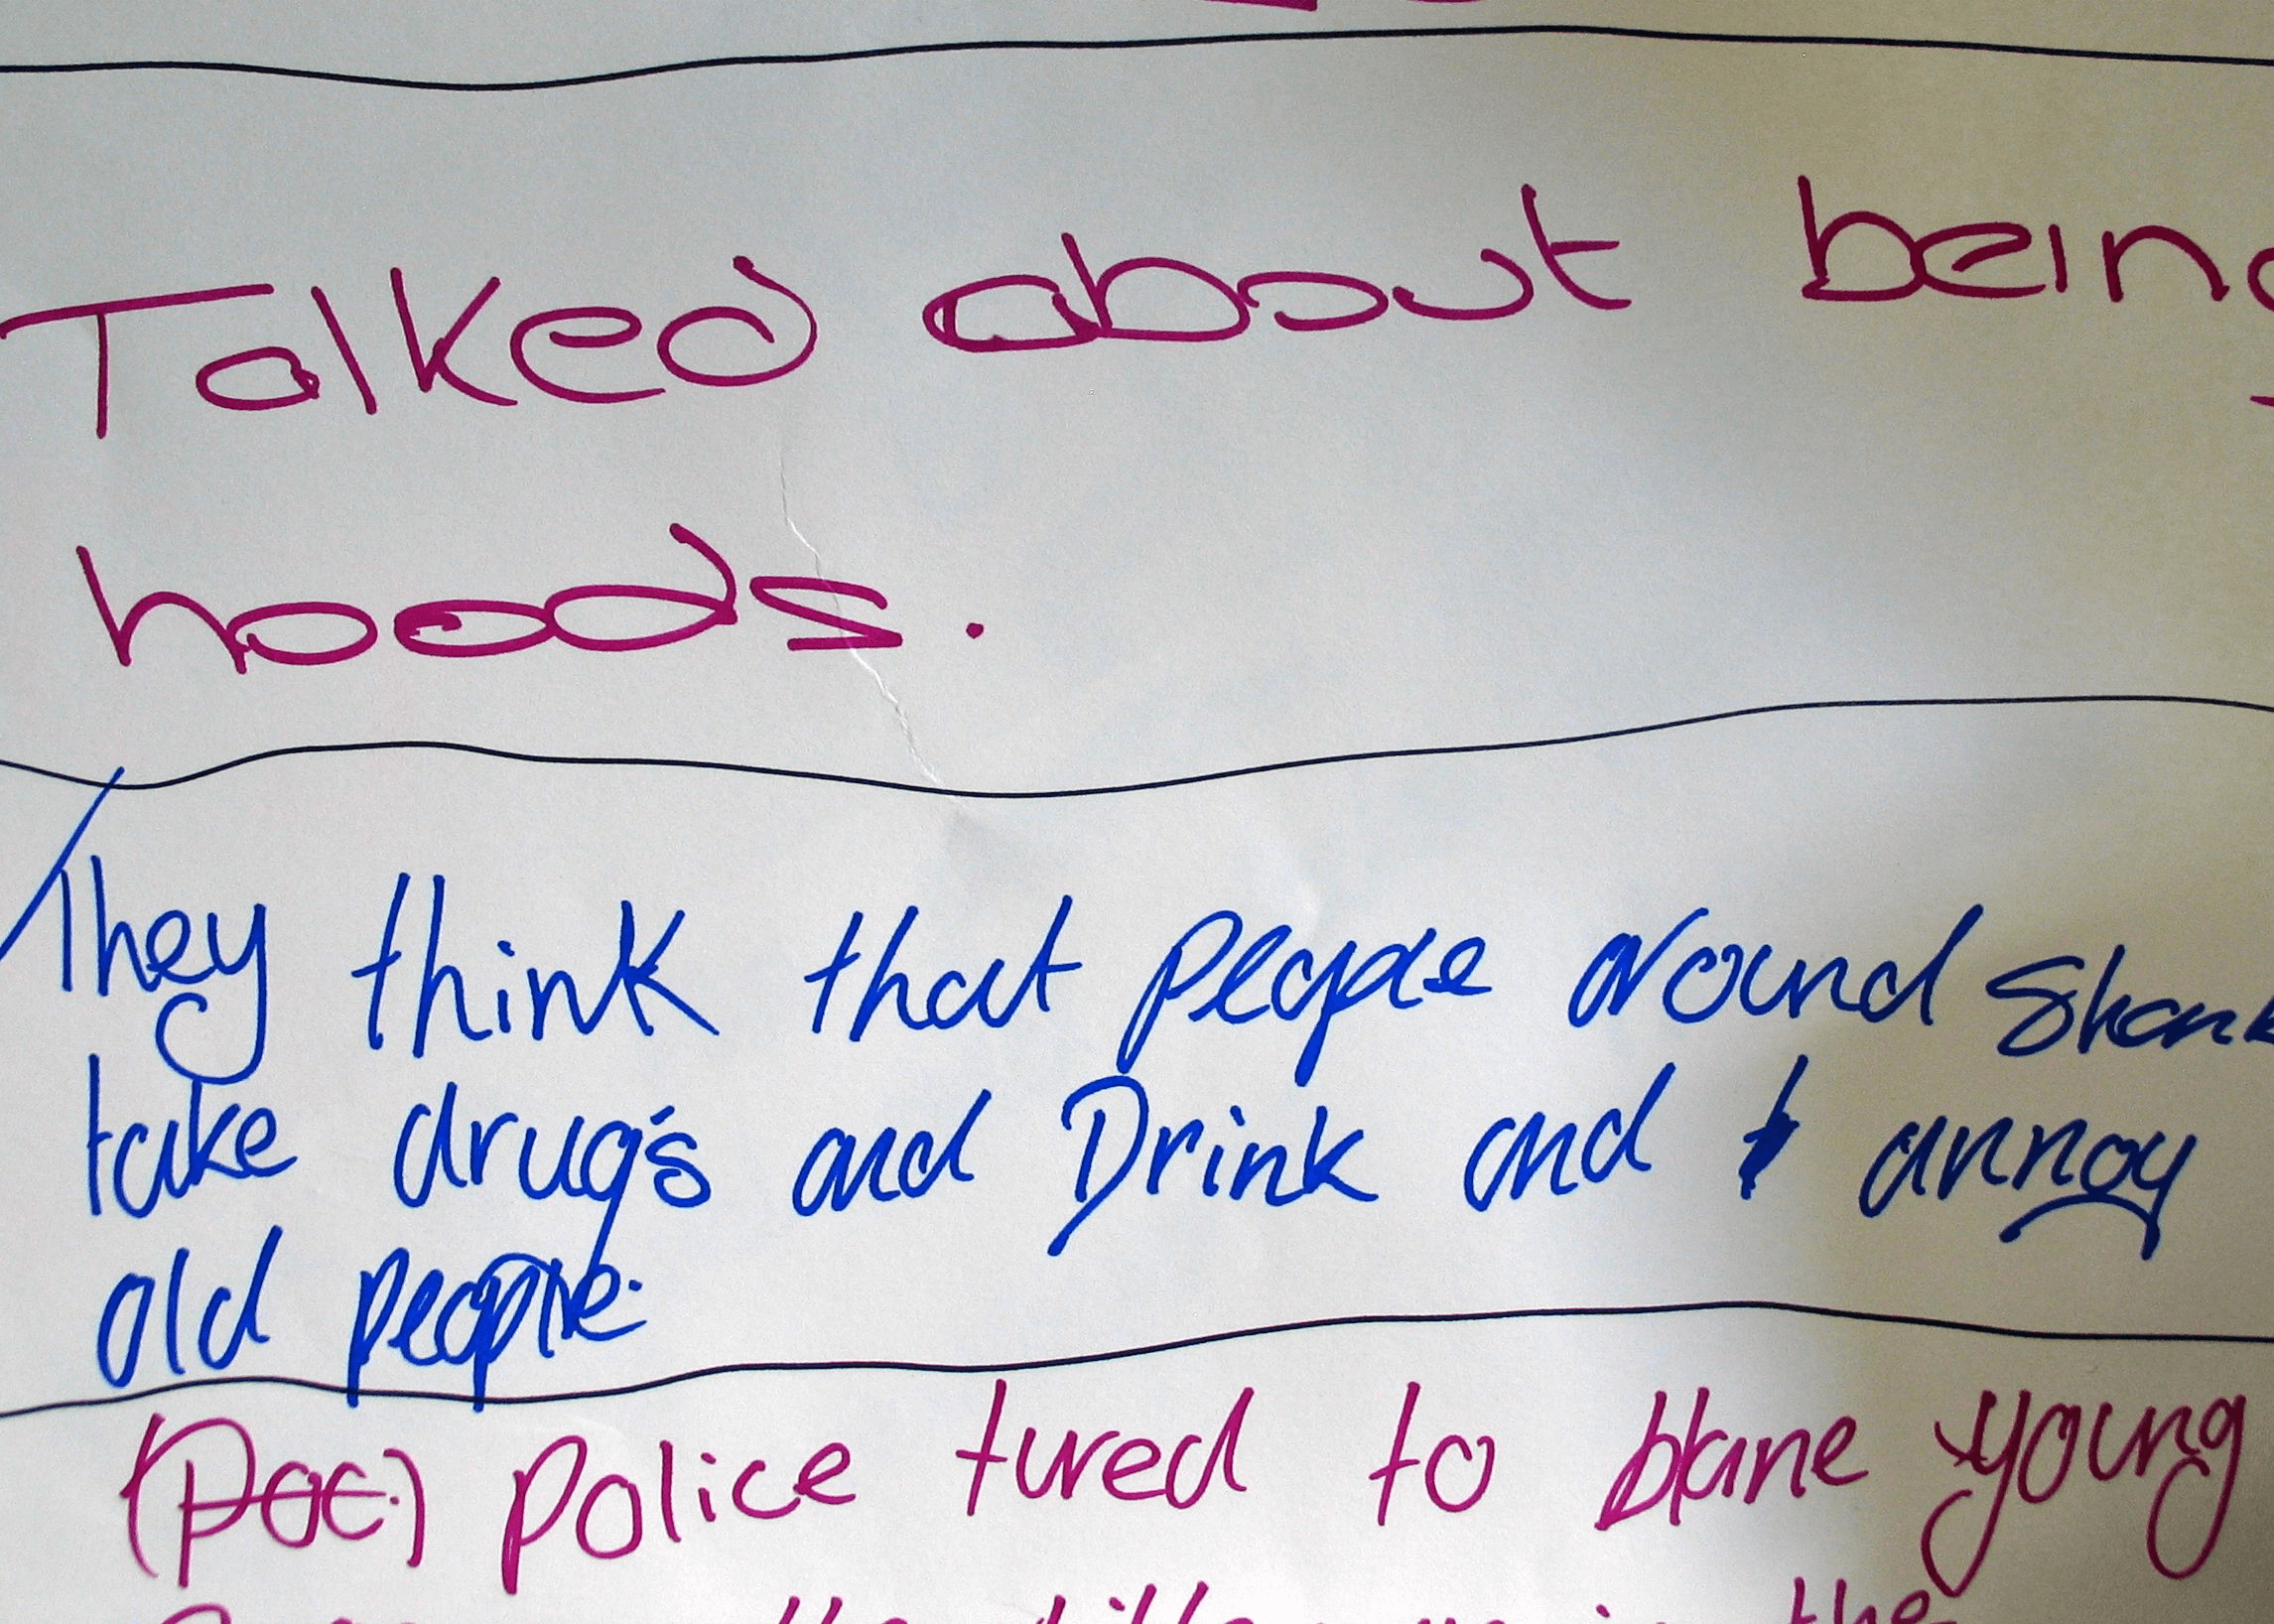 Talked about being
hoods.
They think that people around Shank
take drug's and Drink and annoy
old people.
(Poc.) Police tured to blame young
the